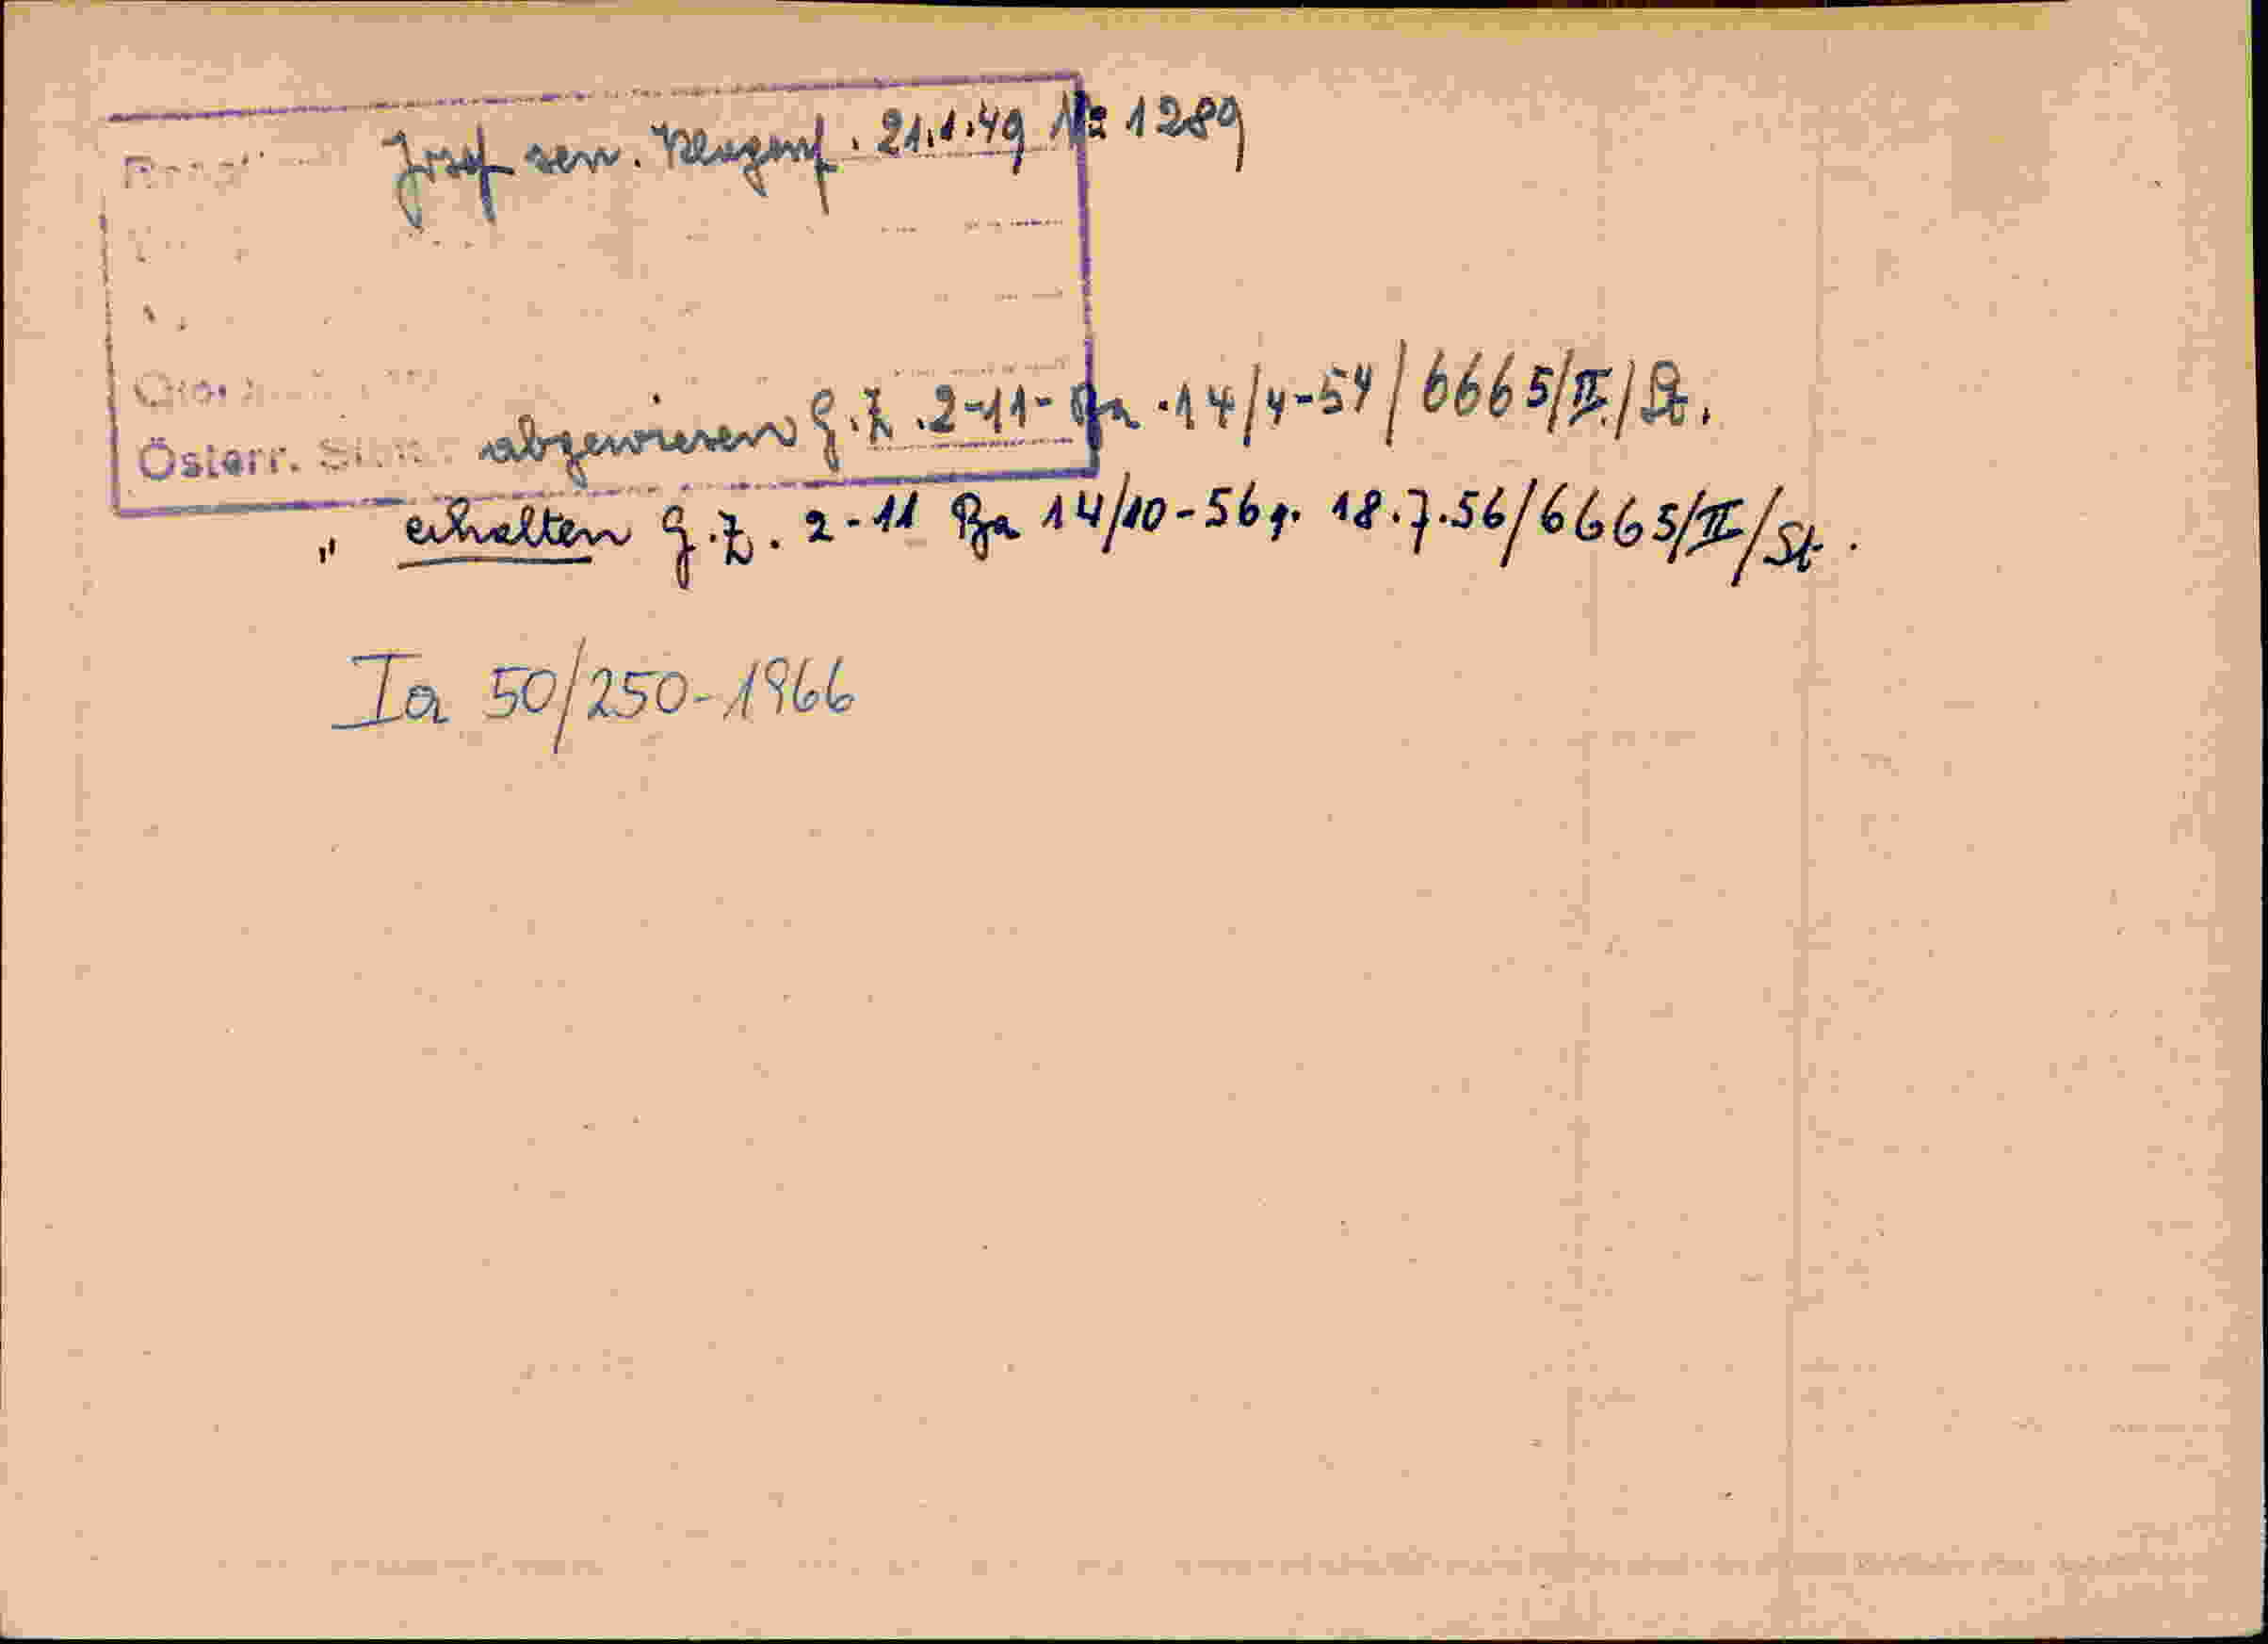 Josef sen. Klagenf. 21.1.49 № 1289
Österr. abgewiesen G.Z. 2-11- Pa. 14/4-54/6665/II./St.
" erhalten G.Z. 2-11 Pa 14/10-56 v. 18.7.56/6665/II/St.
Ia 50/250-1966